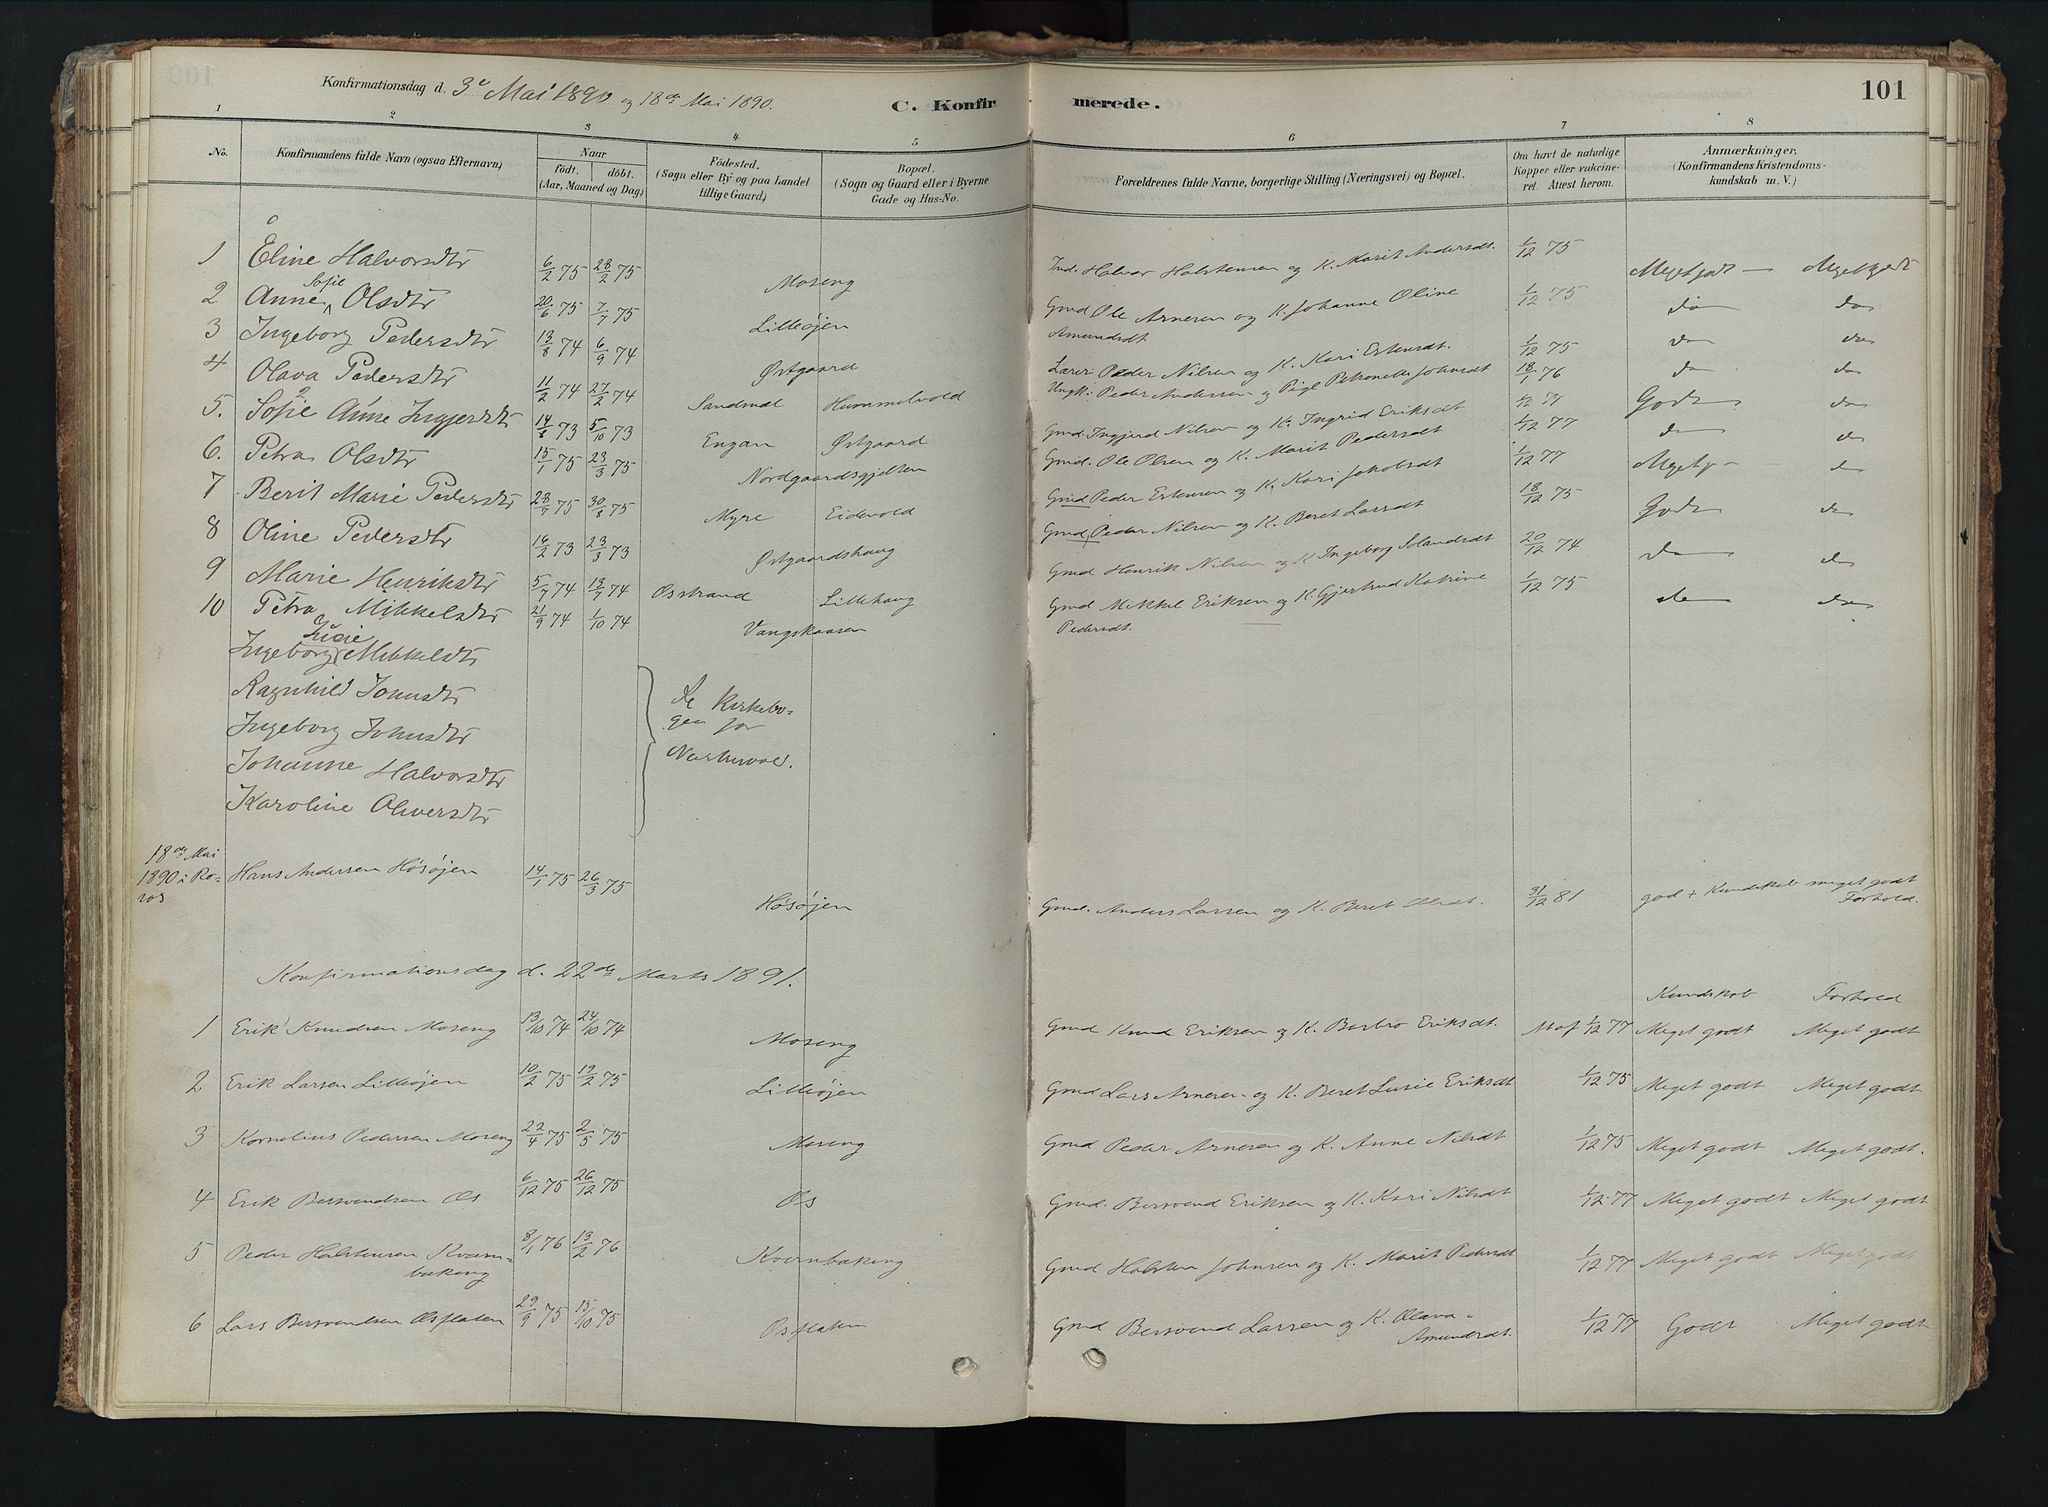 Konfirmationsdag d. 3e Mai 1890 og 18de Mai 1890.
C. Konfirmerede.
101
1 2 3 4 5 6 7 8
No. Konfirmandens fulde Navn (ogsaa Efternavn) Naar født. døbt. (Aar, Maaned og Dag) Fødested. (Sogn eller By og paa Landet tillige Gaard) Bopæl. (Sogn og Gaard eller i Byerne Gade og Hus-No. Forældrenes fulde Navne, borgerlige Stilling (Næringsvei) og Bopæl. Om havt de naturlige Kopper eller vakcineret. Attest herom. Anmærkninger. (Konfirmandens Kristendomskundskab m. V.)
1 Eline Halvorsdtr 6/2 75 28/2 75 Moseng Ind. Halvor Halstensen og K. Marit Andersdt. 1/12 75 Megetgodt — Megetgodt
2 Anne Sofie Olsdtr 20/6 75 7/7 75 Lilleøjen Gmd Ole Arnesen og K. Johanne Oline Amundsdt 1/12 75 do do
3 Ingeborg Pedersdtr 13/8 74 6/9 74 Østgaard Lærer Peder Nilsen og K. Kari Estensdt. 1/12 75 do do
4 Olava Pedersdtr 11/2 74 27/2 74 Sandmæl Hummelvold Ungk. Peder Andersen og Pige Petronelle Johnsdt 18/1 76 do do
5. Sofie Anne Ingjersdtr 14/8 73 5/10 73 Engan Østgaard Gmd. Ingjerd Nilsen og K. Ingrid Eriksdt 1/12 77 Godt do
6. Petra Olsdtr 15/1 75 23/3 75 Nordgaardsgjelten Gmd. Ole Olsen og K. Marit Pedersdt 1/12 77 do do
7 Berit Marie Pedersdtr 28/7 75 30/8 75 Myre Eidevold Gmd Peder Estensen og K. Kari Jakobsdt 1/12 77 Megetg — do
8 Oline Pedersdtr 16/2 73 23/3 73 Østgaardshaug Gmd Peder Nilsen og K. Beret Larsdt 18/12 75 Godt do
9 Marie Henriksdtr 5/7 74 19/7 74 Osstrand Lillehaug Gmd Henrik Nilsen og K Ingeborg Tolandsdt 20/12 74 do do
10 Petra Mikkelsdtr 21/9 74 1/10 74 Vangskaasen Gmd Mikkel Eriksen og K. Gjertrud Katrine Pedersdt. 1/12 75 do do
Ingeborg Lusie Mikkelsdtr
Ragnhild Johnsdtr
Ingeborg Johnsdtr
Johanne Halvorsdtr
Karoline Oliversdtr
Se Kirkebo-
gen for
Narbuvold.
18de Mai 1890 i Røros Hans Andersen Høsøjen 14/1 75 26/3 75 Høsøjen Gmd. Anders Larsen og K. Beret Olsdt. 31/12 81 god + Kundskab meget godt Forhold.
Konfirmationsdag d. 22de Marts 1891.
Kundskab Forhold
1 Erik Knudsen Moseng 13/10 74 24/10 74 Moseng Gmd Knud Eriksen og K. Barbro Eriksdt. Att af 1/12 77 Meget godt Meget godt
2 Erik Larsen Lilleøjen 10/2 75 19/2 75 Lilleøjen Gmd Lars Arnesen og K. Beret Lusie Eriksdt 1/12 75 Meget godt Meget godt
3 Kornelius Pedersen Moseng 22/4 75 2/5 75 Moseng Gmd Peder Arnesen og K. Anne Nilsdt 1/12 75 Meget godt Meget godt.
4 Erik Bersvendsen Os 6/12 75 26/12 75 Os Gmd. Bersvend Eriksen og K. Kari Nilsdt 1/12 77 Meget godt Meget godt
5 Peder Halstensen Kvernbakeng 8/1 76 13/2 76 Kvernbakeng Gmd Halsten Johnsen og K. Marit Pedersdt 1/12 77 Meget godt Meget godt
6 Lars Bersvendsen Osfloten 29/9 75 15/10 75 Osfloten Gmd Bersvend Larsen og K. Olava Amundsdt. 1/12 77 Godt Meget godt